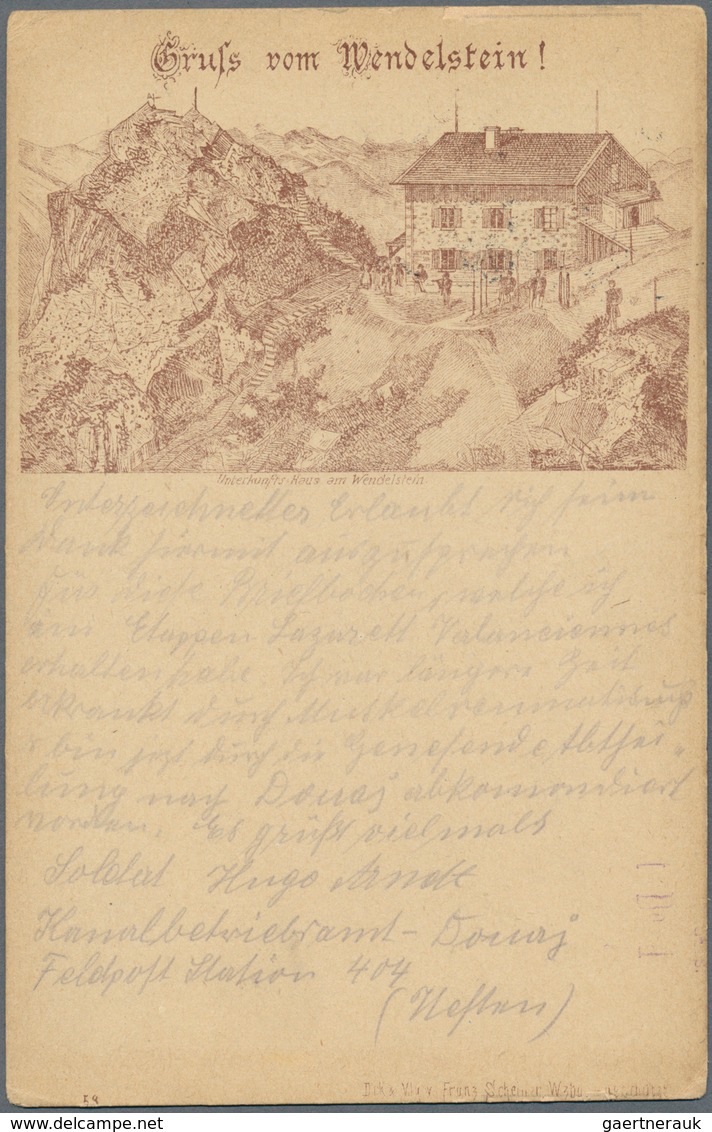 Gruss vom Wendelstein!
Unterkunfts-Haus am Wendelstein
Unterzeichneter Erlaubt sich seinen
Dank hiermit auszusprechen
für diese, welche ich
im Etappen Lazarett Valanciennes
erhalten habe Ich war längere Zeit
erkrankt durch Muskelreumatismus
& bin jezt durch die Genesende Abthei-
lung nach Douaj abkomondiert
worden. Es grüßt vielmals
Soldat Hugo Arndt
Kanalbetriebsamt - Douaj
Feldpost Station 404
(Westen)
Franz Scheiner Wzbg.
gaertnerauk